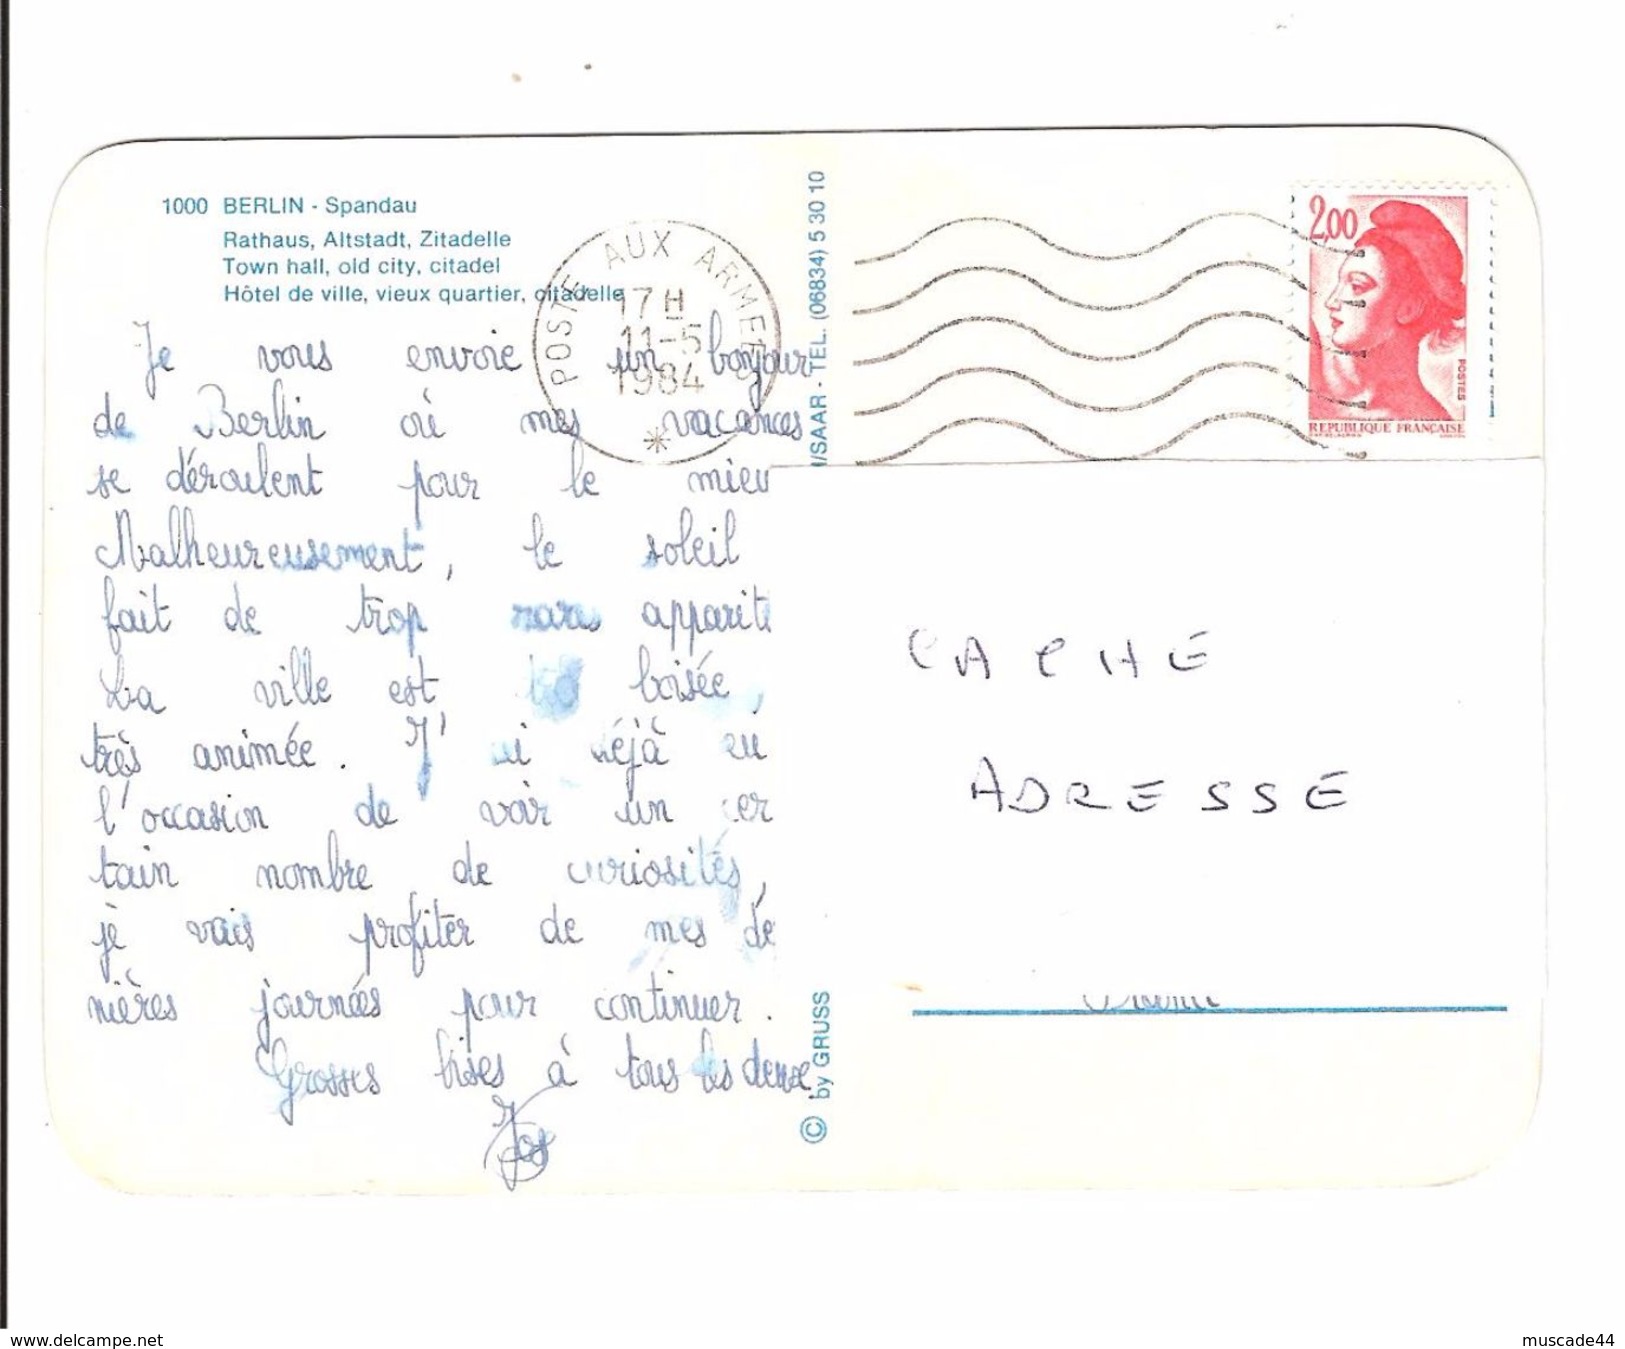 1000 BERLIN - Spandau
Rathaus, Altstadt, Zitadelle
Town hall, old city, citadel
Hôtel de ville, vieux quartier, citadelle
POSTE AUX ARMEES
17 H
11-5
1984
2,00
POSTES
REPUBLIQUE FRANÇAISE
Je vous envoie un bonjour
de Berlin où mes vacances
se déroulent pour le mieu
Malheureusement, le soleil
fait de trop rares apparit
La ville est boisée,
très animée. J'ai déjà eu
l'occasion de voir un cer
tain nombre de curiosités,
je vais profiter de mes de
nières journées pour continuer.
Grosses bises à tous les deux
/SAAR - TEL. (06834) 5 30 10
© by GRUSS
CACHE
ADRESSE
www.delcampe.net
muscade44